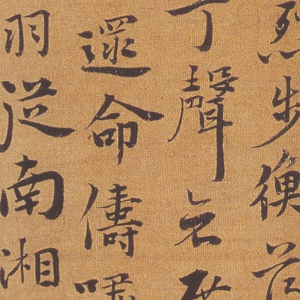 烈步衡薄
兮聲哀厲
遝命儔嘯
羽從南湘